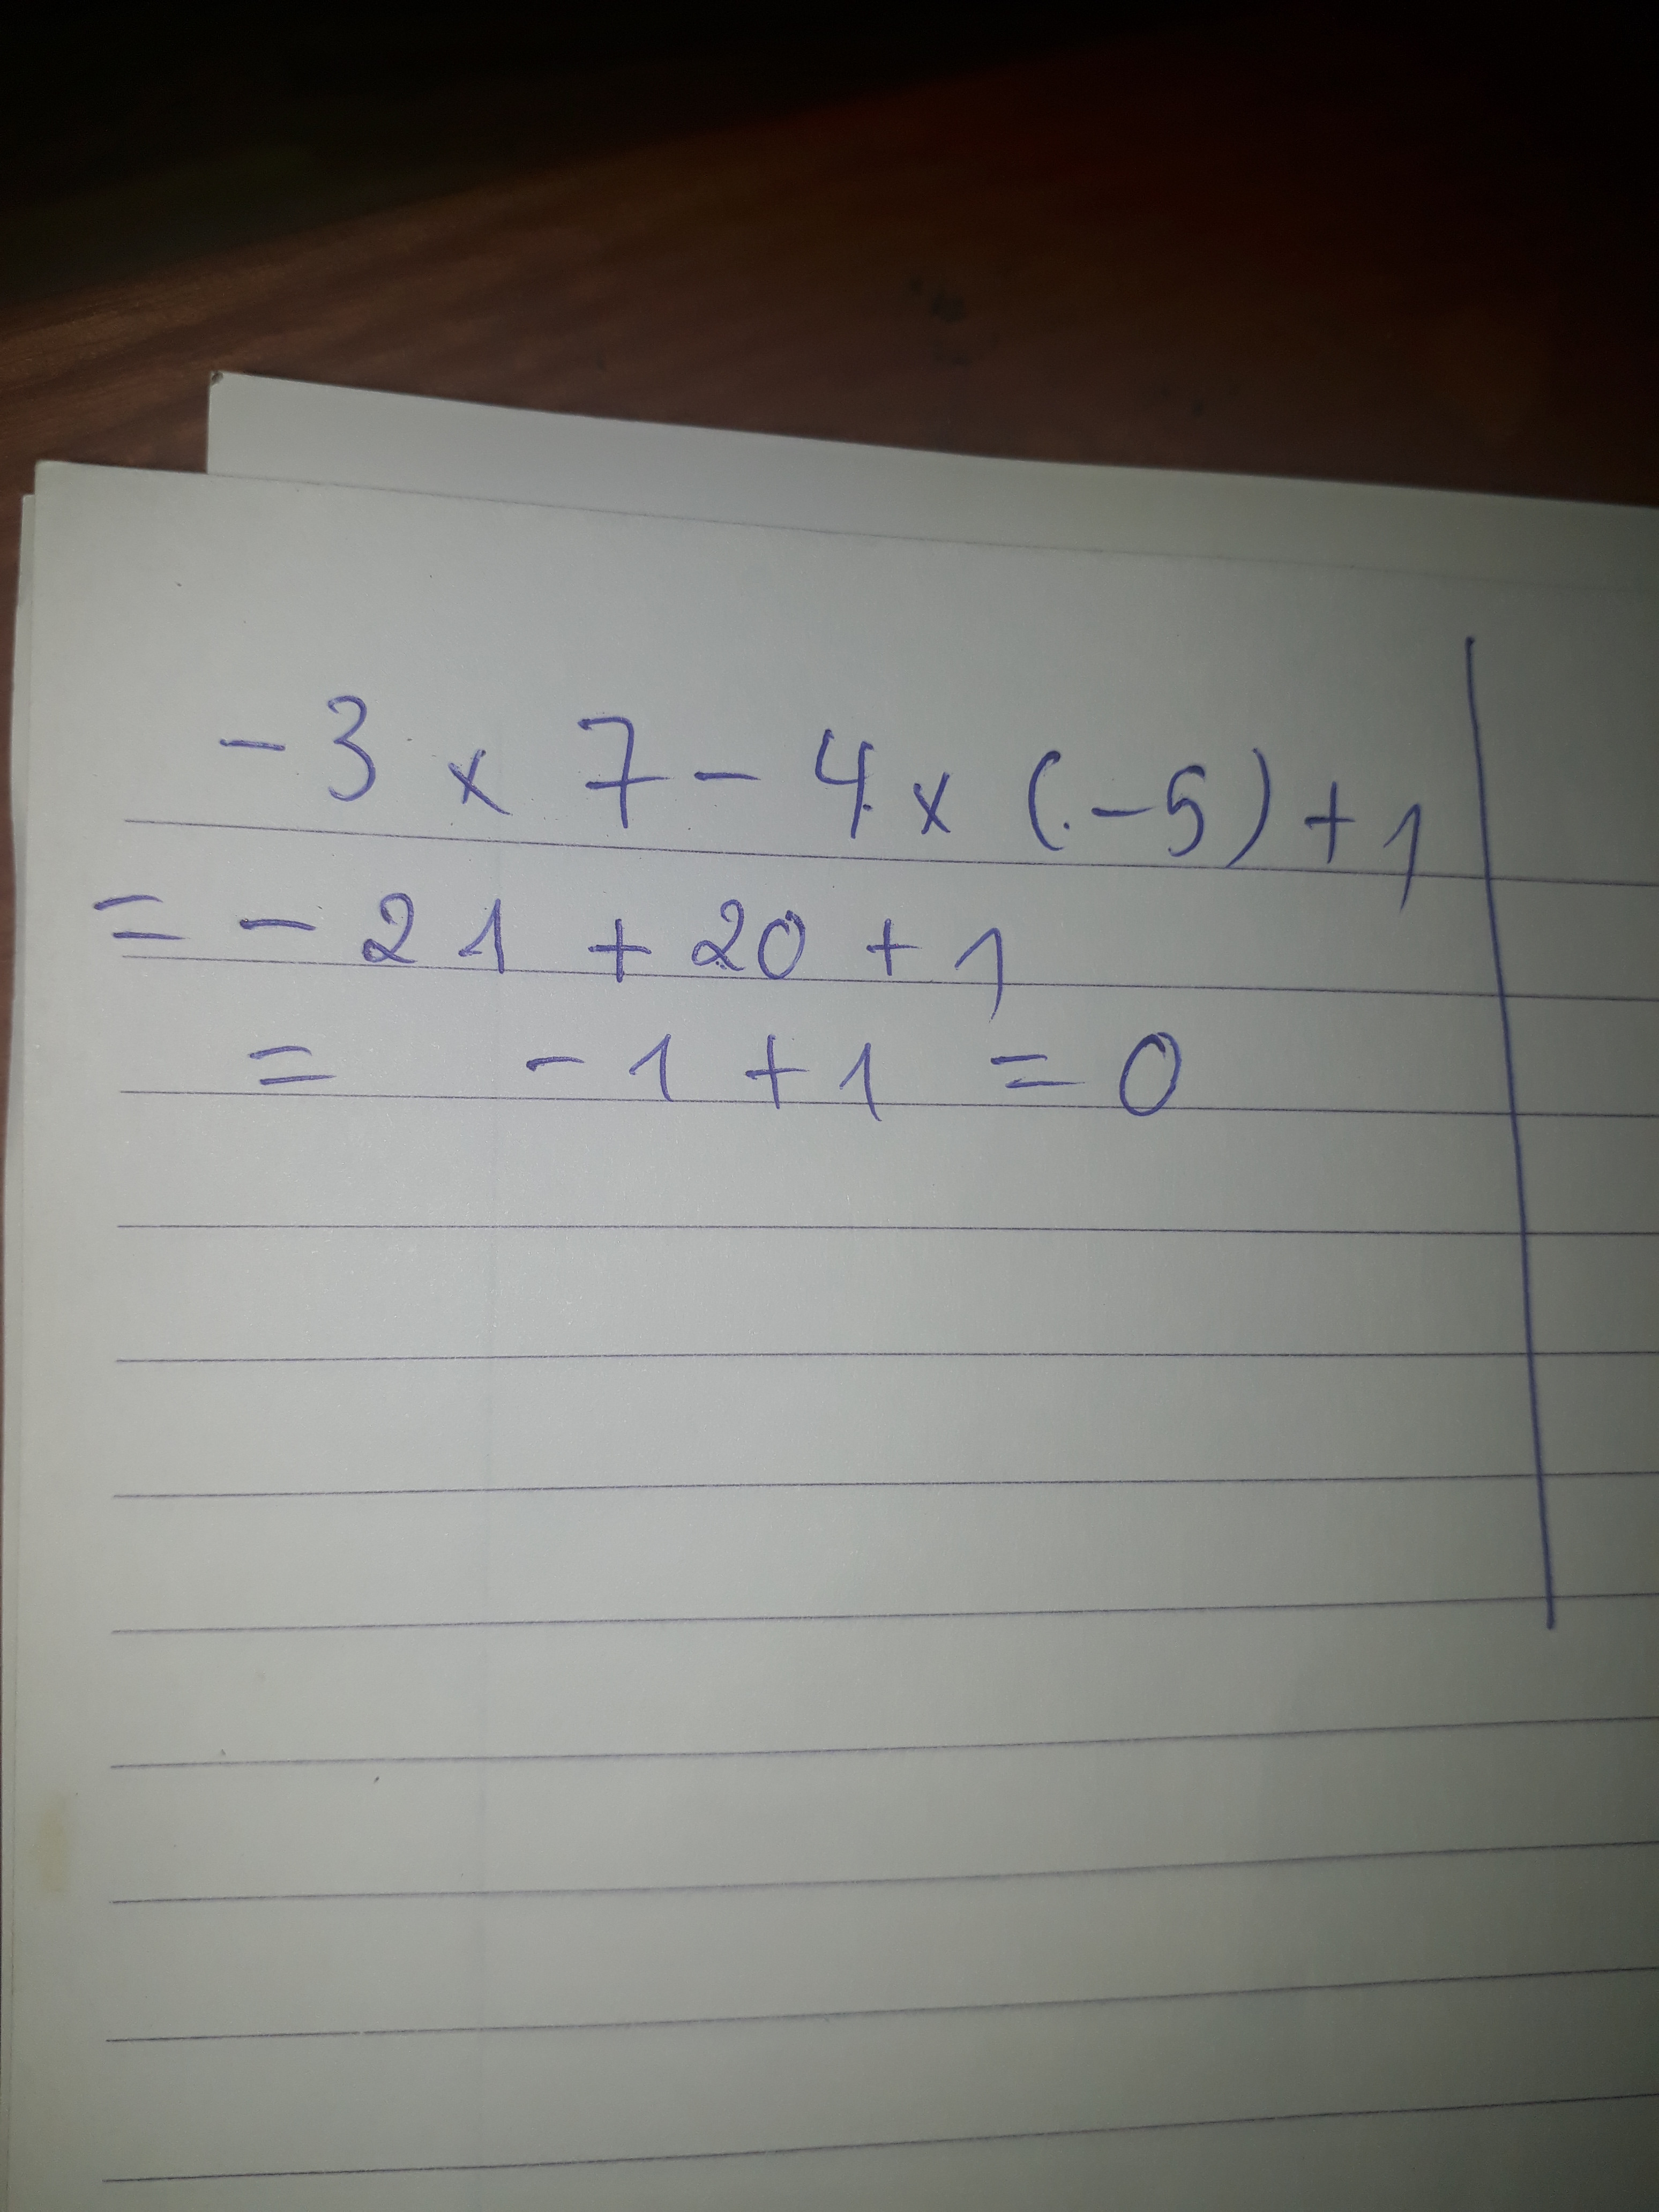 -3 x 7 - 4 x (-5) + 1
= - 21 + 20 + 1
= - 1 + 1 = 0